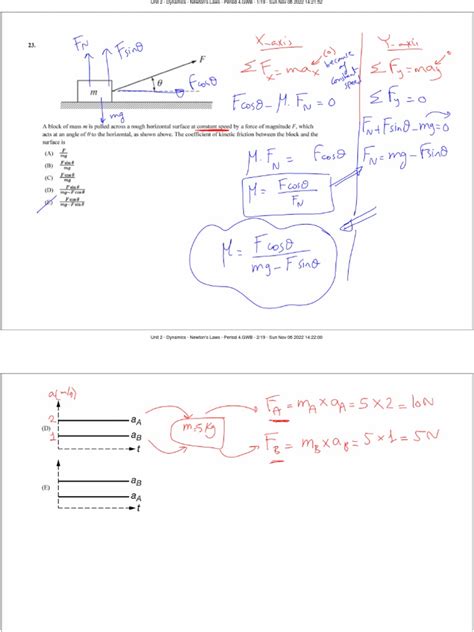 Unit 2 - Dynamics - Newton's Laws - Period 4.GWB - 1/19 - Sun Nov 06 2022 14:21:52
23.
F_N
Fsinθ
F
θ
Fcosθ
m
mg
A block of mass m is pulled across a rough horizontal surface at constant speed by a force of magnitude F, which
acts at an angle of θ to the horizontal, as shown above. The coefficient of kinetic friction between the block and the
surface is
(A) F/mg
(B) F sinθ/mg
(C) F cosθ/mg
(D)
(E)
X-axis
ΣF_x = ma_x (0)
because
of
constant
speed
Fcosθ - μ.F_N = 0
μ.F_N = Fcosθ
μ = Fcosθ/F_N
μ = F cosθ/mg - F sinθ
Y-axis
ΣF_y = ma_y 0
ΣF_y = 0
F_N + Fsinθ - mg = 0
F_N = mg - Fsinθ
Unit 2 - Dynamics - Newton's Laws - Period 4.GWB - 2/19 - Sun Nov 06 2022 14:22:00
2
(D)
1
a_A
a_B
t
m=5kg
F_A = m_A × a_A = 5 × 2 = 10N
F_B = m_B × a_B = 5 × 1 = 5N
(E)
a_B
a_A
t